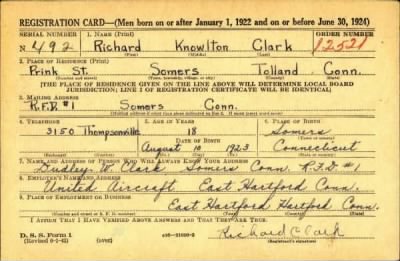 REGISTRATION CARD—(Men born on or after January 1, 1922 and on or before June 30, 1924)
SERIAL NUMBER 1. NAME (Print) ORDER NUMBER
N 492 Richard Knowlton Clark 12521
(First) (Middle) (Last)
2. PLACE OF RESIDENCE (Print)
Prink St. Somers Tolland Conn.
(Number and street) (Town, township, village, or city) (County) (State)
[THE PLACE OF RESIDENCE GIVEN ON THE LINE ABOVE WILL DETERMINE LOCAL BOARD
JURISDICTION; LINE 2 OF REGISTRATION CERTIFICATE WILL BE IDENTICAL]
3. MAILING ADDRESS
R.F.D. #1 Somers Conn.
[Mailing address if other than place indicated on line 2. If same insert word same]
4. TELEPHONE 5. AGE IN YEARS 6. PLACE OF BIRTH
3150 Thompsonville 18 Somers
DATE OF BIRTH (Town or county)
August 10 1923 Connecticut
(Exchange) (Number) (Mo.) (Day) (Yr.) (State or country)
7. NAME AND ADDRESS OF PERSON WHO WILL ALWAYS KNOW YOUR ADDRESS
Dudley W. Clark Somers Conn. R.F.D. #1
8. EMPLOYER'S NAME AND ADDRESS
United Aircraft East Hartford Conn.
9. PLACE OF EMPLOYMENT OR BUSINESS
East Hartford, Hartford Conn.
(Number and street or R. F. D. number) (Town) (County) (State)
I AFFIRM THAT I HAVE VERIFIED ABOVE ANSWERS AND THAT THEY ARE TRUE.
D. S. S. Form 1 Richard Clark
(over) (Registrant's signature)